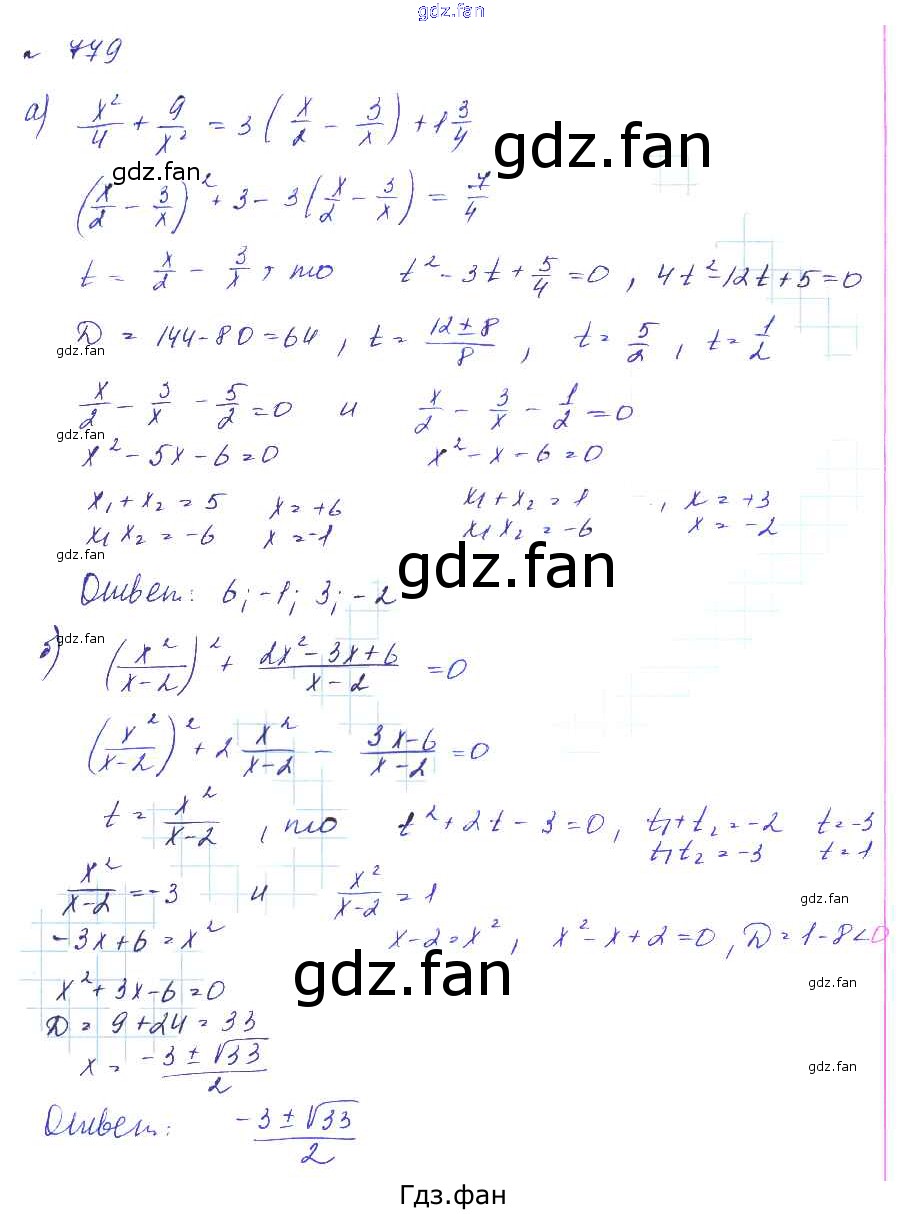 gdz.fan
n 779
а) x²/4 + 9/x² = 3 (x/2 - 3/x) + 1 3/4
gdz.fan
gdz.fan
(x/2 - 3/x)² + 3 - 3(x/2 - 3/x) = 7/4
t = x/2 - 3/x, то t² - 3t + 5/4 = 0, 4t² - 12t + 5 = 0
Д = 144 - 80 = 64, t = (12 ± 8)/8, t = 5/2, t = 1/2
gdz.fan
x/2 - 3/x - 5/2 = 0 и x/2 - 3/x - 1/2 = 0
gdz.fan
x² - 5x - 6 = 0 x² - x - 6 = 0
x₁ + x₂ = 5 x = +6 x₁ + x₂ = 1, x = +3
x₁ x₂ = -6 x = -1 x₁ x₂ = -6 x = -2
gdz.fan
gdz.fan
Ответ: 6; -1; 3; -2
gdz.fan
б) (x²/(x-2))² + (2x² - 3x + 6)/(x-2) = 0
(x²/(x-2))² + 2 x²/(x-2) - (3x-6)/(x-2) = 0
t = x²/(x-2), то t² + 2t - 3 = 0, t₁ + t₂ = -2 t = -3
t₁ t₂ = -3 t = 1
x²/(x-2) = -3 и x²/(x-2) = 1
gdz.fan
-3x + 6 = x² x - 2 = x², x² - x + 2 = 0, Д = 1 - 8 < 0
gdz.fan
gdz.fan
x² + 3x - 6 = 0
Д = 9 + 24 = 33
x = (-3 ± √33)/2
gdz.fan
Ответ: (-3 ± √33)/2
Гдз.фан